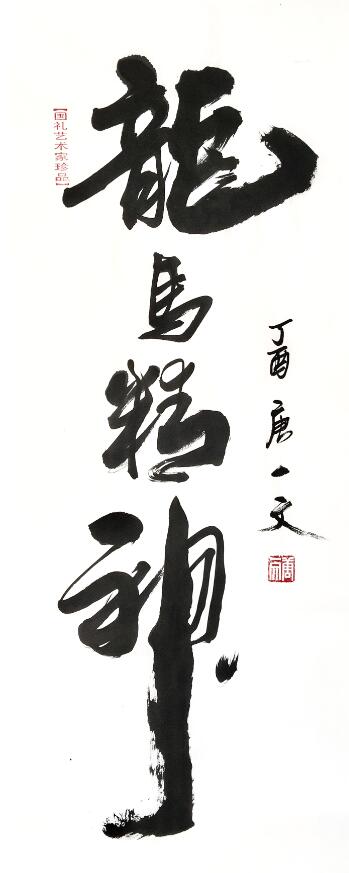 【国礼艺术家珍品】
龍馬精神
丁酉 唐一文